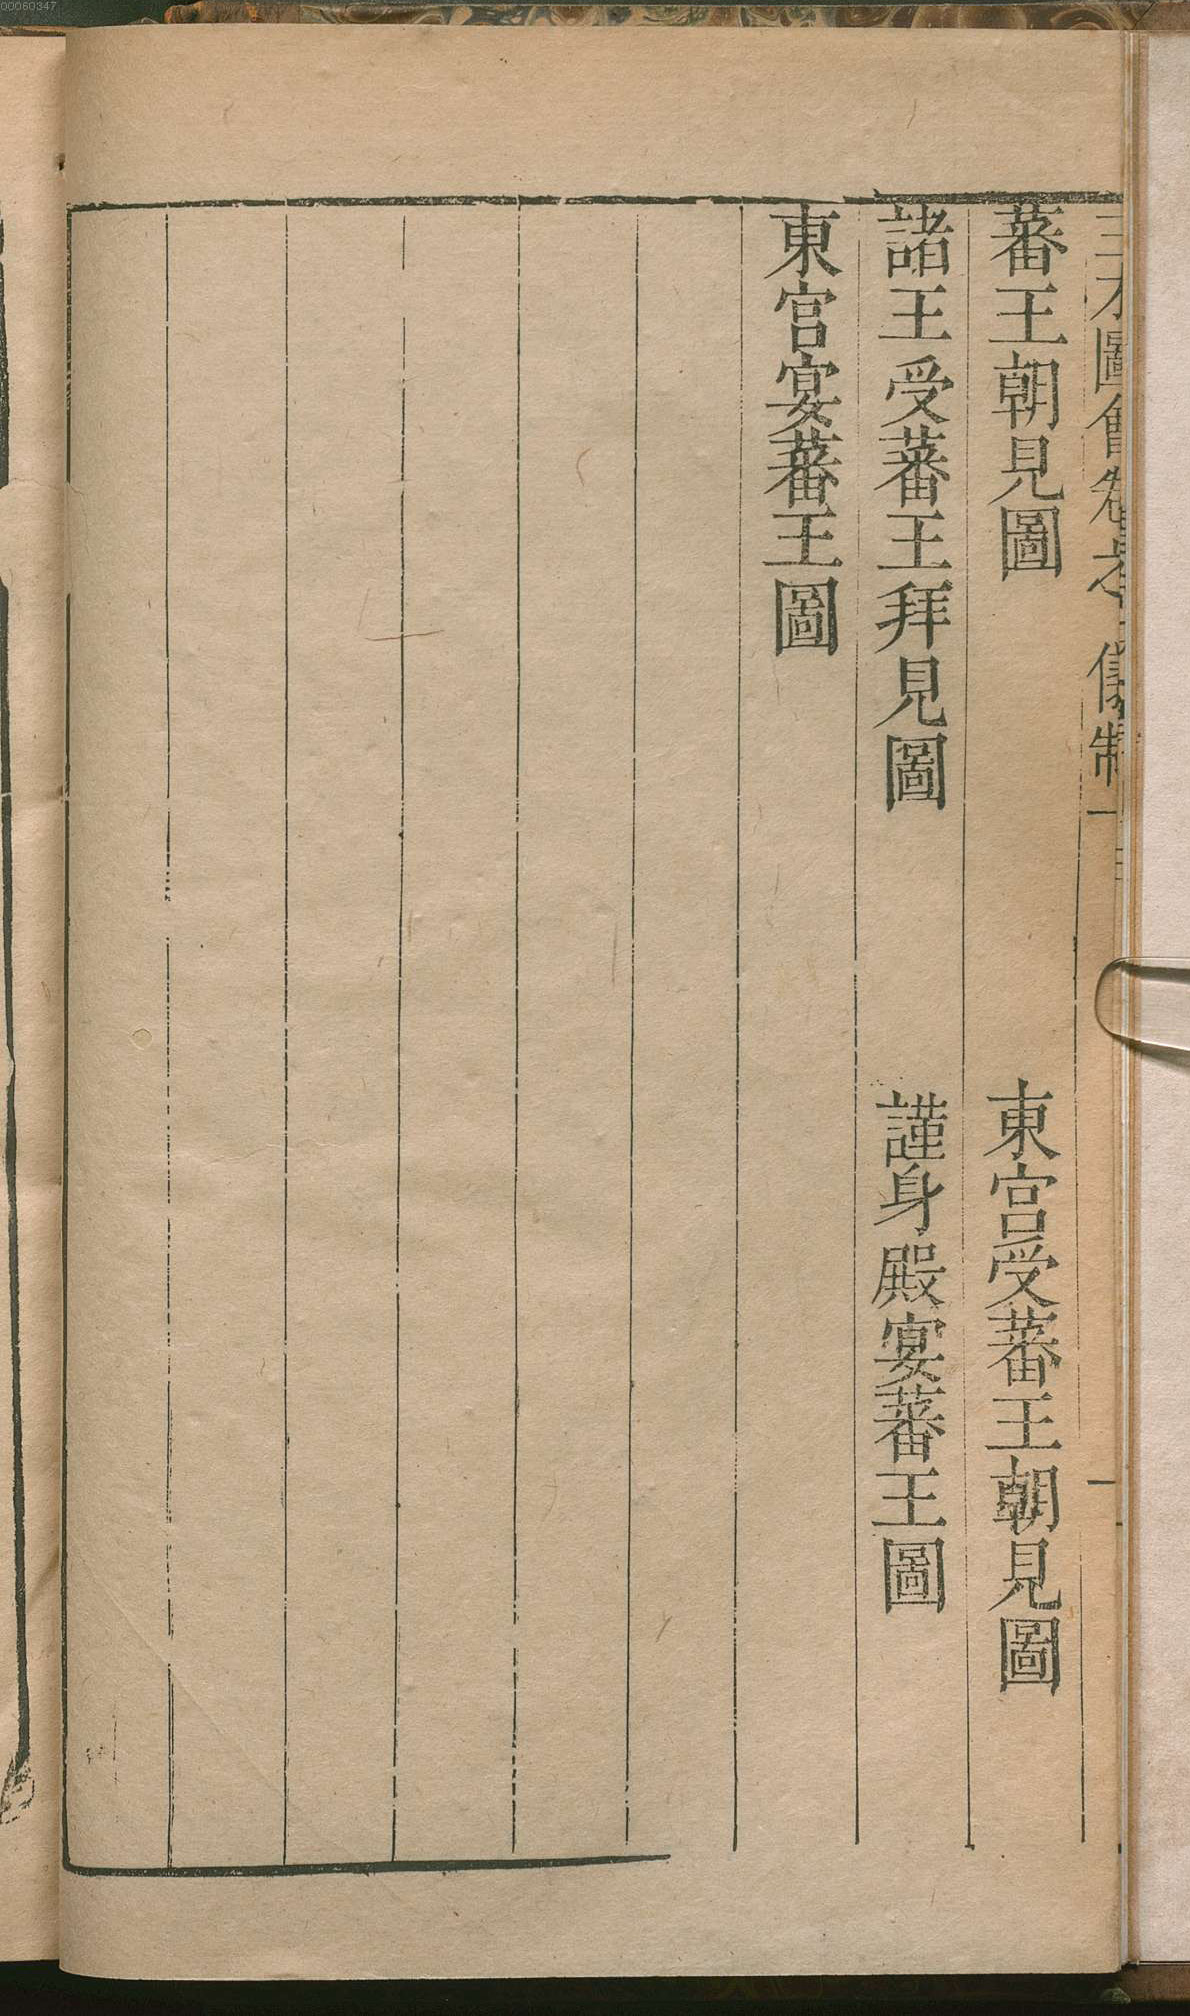 00060347
三才圖會卷之一儀制一
蕃王朝見圖
東宮受蕃王朝見圖
諸王受蕃王拜見圖
謹身殿宴蕃王圖
東宮宴蕃王圖